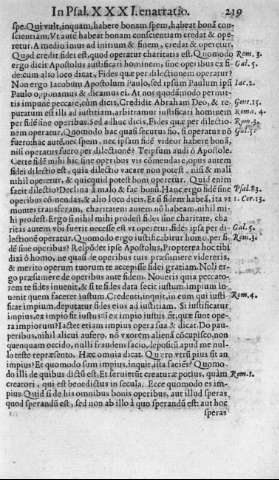 In Psal. XXXI. enarratio. 219
spe. Qui vult, inquam, habere bonam spem, habeat bonã con
scientiam. Vt autẽ habeat bonam conscientiam credat & ope-
retur. A medio iuit ad initium & finem, credat & operetur.
Quod credit fidei est, quod operatur charitatis est. Quomodo Rom. 3.
ergo dicit Apostolus iustificari hominem, sine operibus ex fi- Gal. 5.
de: cum alio loco dicat, Fides que per dilectionem operatur?
Non ergo Iacobum Apostolum Paulo, sed ipsum Paulum ipsi Iac. 2.
Paulo opponamus & dicamus ei. At nos quodãmodo permit-
tis impune peccare, cùm dicis, Credidit Abraham Deo, & re- Gene. 15.
putatum est illi ad iustitiam, arbitramur iustificari hominem Roma. 4.
per fidẽ sine operibus Sed & alio hac dicis, Fides que per dilectio- Rom. 3.
nem operatur. Quomodo hac quasi securus sio, si operatus nõ Gal. 5.
fuero: hac autẽ, nec spem, nec ipsam fidẽ videor habere bonã,
nisi operatus fuero per dilectionẽ? Te ipsum audi ô Apostole.
Certe fidẽ mihi hic sine operibus vis cõmendare, opus autem
fidei dilectio est, quia dilectio vacare non potest, nisi & mali
nihil operetur, & quicquid potest boni operetur. Quid enim
facit dilectio? Declina à malo & fac boni. Hanc ergo fidẽ sine Psal. 33.
operibus cõmendas, & alio loco dicis, Et si fidem habeã, ita vt 1. Cor. 13.
montes transferam, charitatem autem nõ habeam nihil mi-
hi prodest. Ergo si nihil mihi prodest fides sine charitate, cha
ritas autem vbi fuerit necesse est vt operetur: fides ipsa per di- Gal. 5.
lectionẽ operatur. Quomodo ergo iustificabitur homo per fi- Rom. 3.
dẽ sine operibus? Respõdet ipse Apostolus, Propterea hoc tibi
dixi ô homo, ne quasi de operibus tuis præsumere videreris,
& merito operum tuorum te accepisse fidei gratiam. Noli er-
go præsumere de operibus ante fidem. Noueris quia peccato-
rem te fides inuenit, & si te fides data fecit iustum impium in-
uenit quem faceret iustum Credenti, inquit, in eum qui iusti- Rom. 4.
ficat impium, deputatur fides eius ad iustitiam. Si iustificatur
impius, ex impio fit iustus: si ex impio iustus fit, quæ sunt ope-
ra impiorum? Iactet etiam impius opera sua & dicat. Do pau-
peribus, nihil alicui aufero, nõ vxorem alienã cõcupisco, non
quenquam occido, nulli fraudem facio, depositũ apud me nul-
lo teste repræsento. Hæc omnia dicat. Quæro vtrũ pius sit an
impius? Et quomodo sum impius, inquit, ista facies? Quomo-
do illi de quibus dictũ est. Et seruierũt creaturæ potius, quàm Rom. 1.
creatori, qui est benedictus in secula. Ecce quomodo es im-
pius. Quid si de his omnibus bonis operibus, aut illud speras,
quod sperandũ est, sed non ab illo à quo sperandũ est: aut hoc
speras